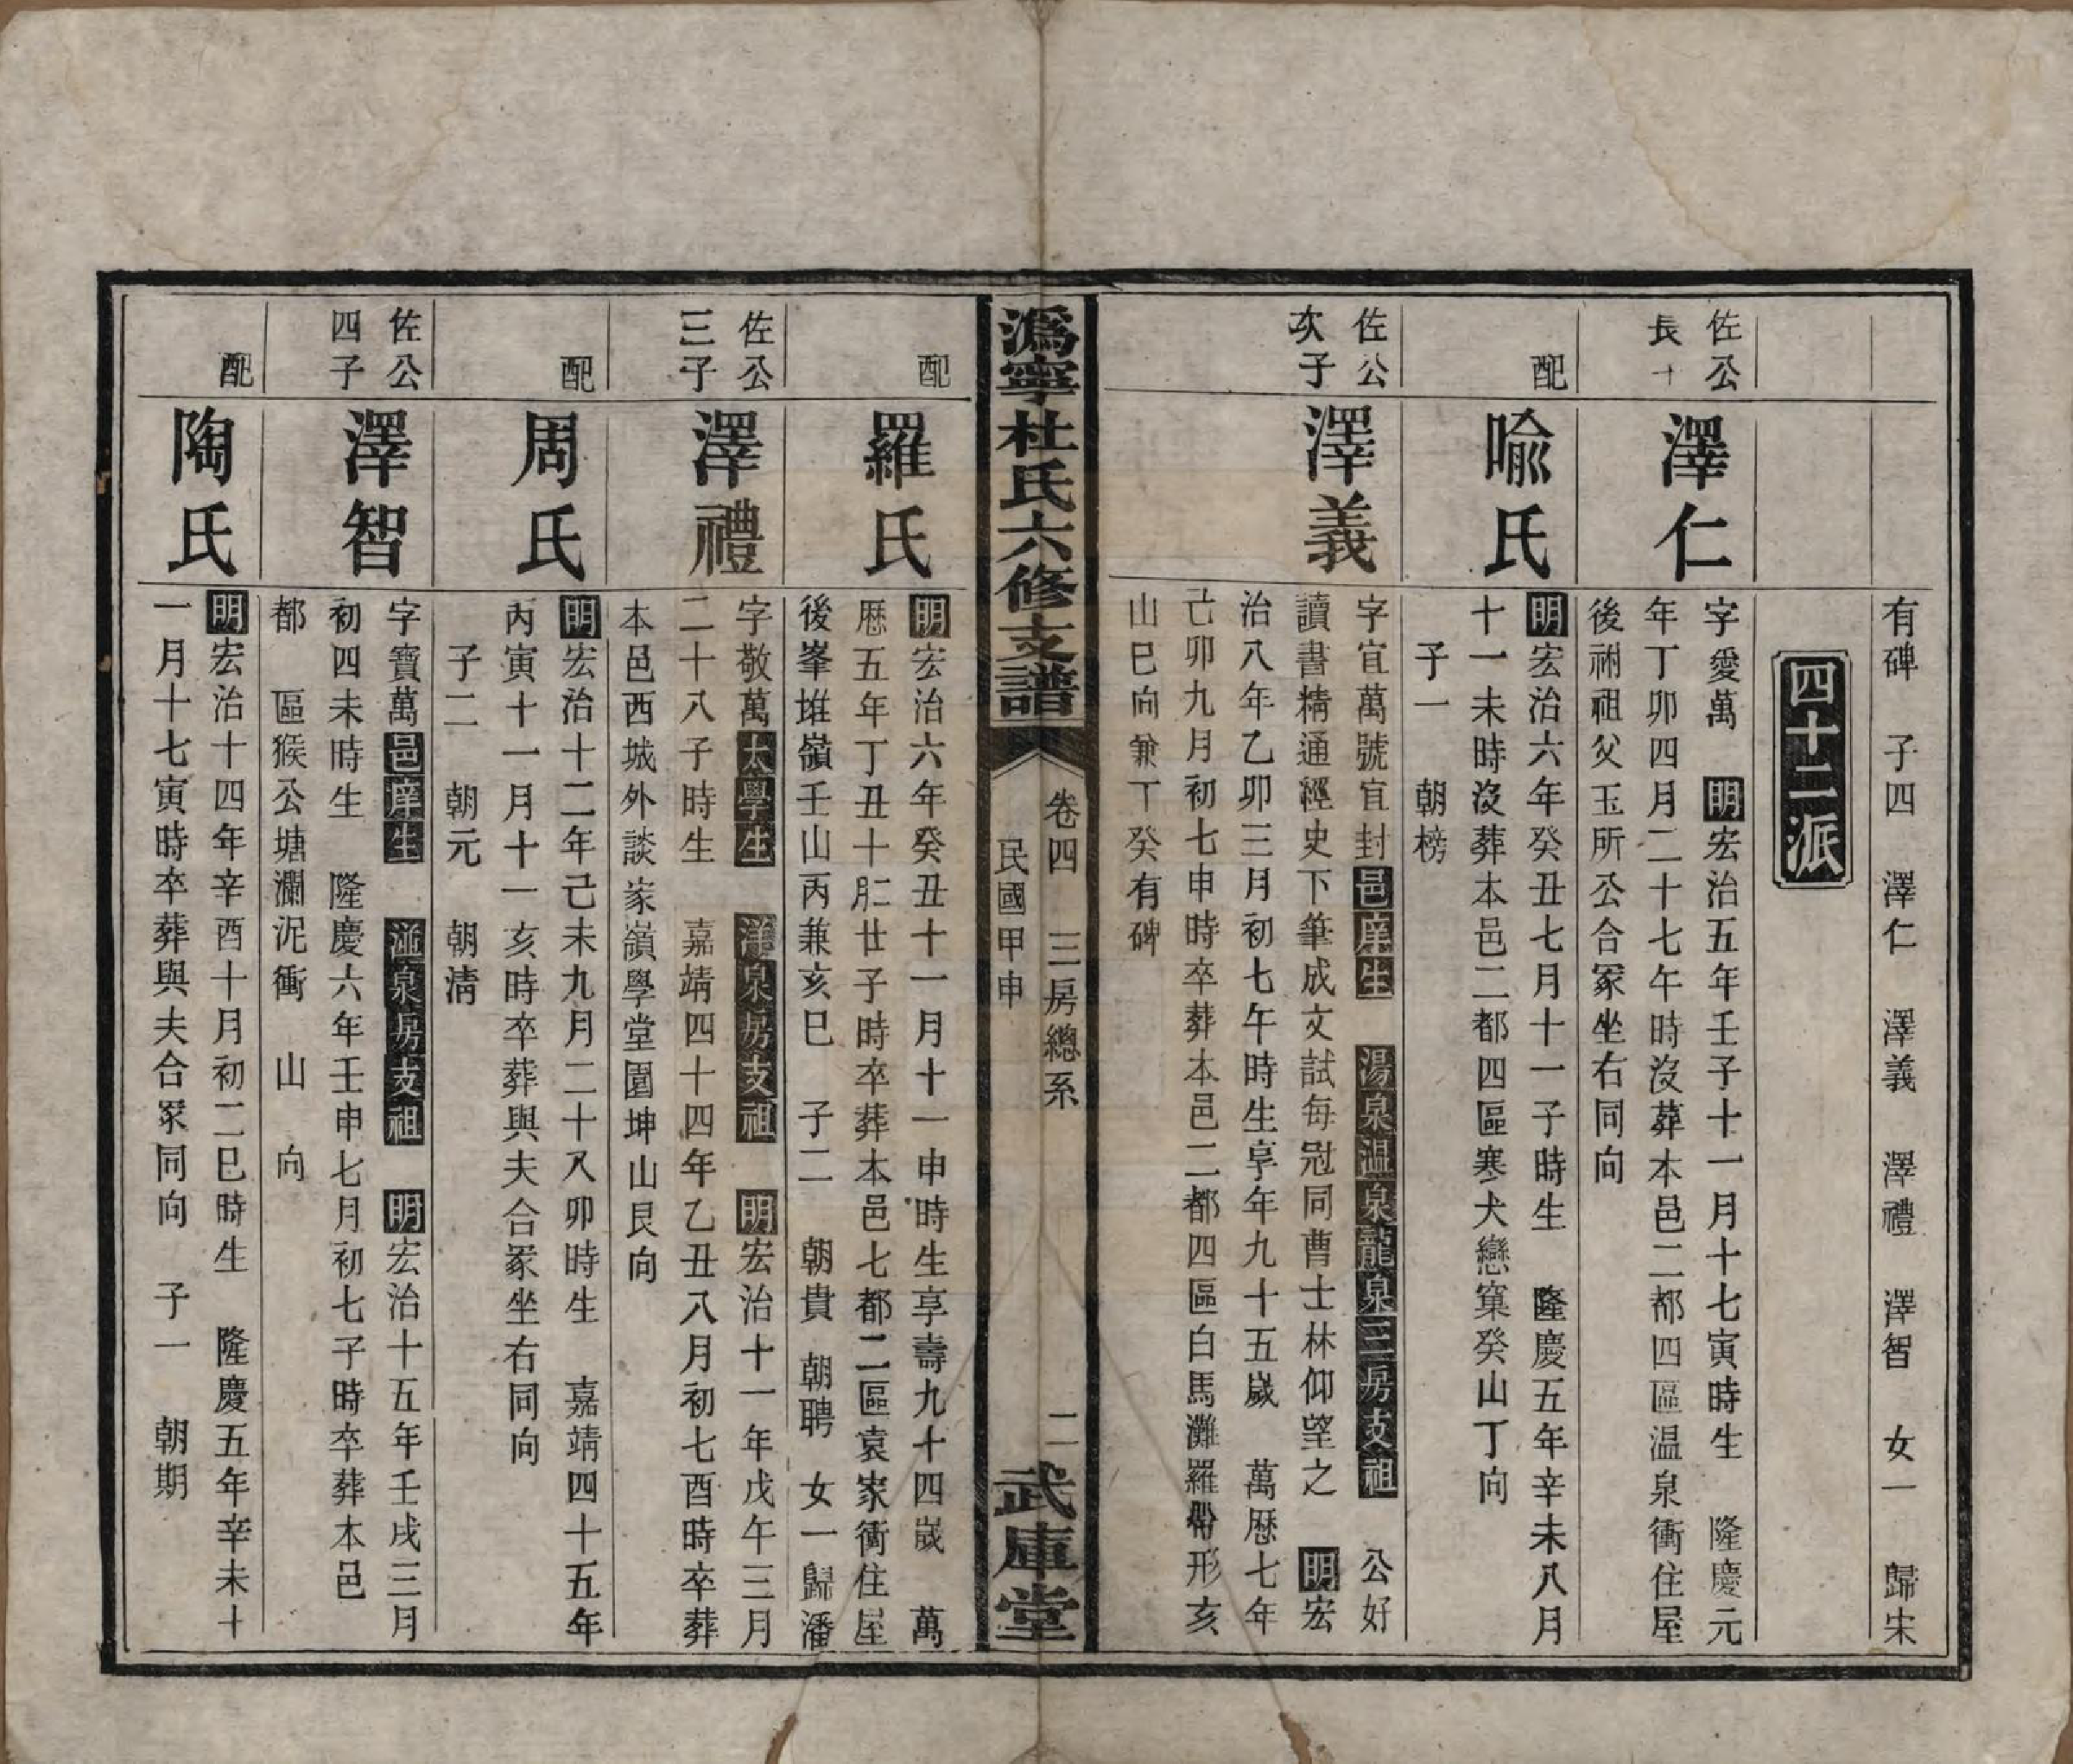 有碑　子四　澤仁　澤義　澤禮　澤智　女一　歸宋
四十二派
佐公
長
澤仁
字愛萬　明宏治五年壬子十一月十七寅時生　隆慶元
年丁卯四月二十七午時沒葬本邑二都四區温泉衝住屋
後祔祖父玉所公合冢坐右同向
配
喻氏
明宏治六年癸丑七月十一子時生　隆慶五年辛未八月
十一未時沒葬本邑二都四區寒犬戀窠癸山丁向
子一　朝榜
佐公
次子
澤義
字宜萬號宜封邑庠生　湯泉温泉龍泉三房支祖　公好
讀書精通經史下筆成文試每冠同曹士林仰望之　明宏
治八年乙卯三月初七午時生享年九十五嵗　萬歷七年
己卯九月初七申時卒葬本邑二都四區白馬灘羅帶形亥
山巳向兼丁癸有碑
溈寧杜氏六修支譜
卷四　三房總系
民國甲申
二
武庫堂
配
羅氏
明宏治六年癸丑十一月十一申時生享壽九十四嵗　萬
歷五年丁丑十月二廿子時卒葬本邑七都二區袁家衝住屋
後峯堆嶺壬山丙兼亥巳　子二　朝貴　朝聘　女一歸潘
佐公
三子
澤禮
字敬萬太學生　洋泉房支祖　明宏治十一年戊午三月
二十八子時生　嘉靖四十四年乙丑八月初七酉時卒葬
本邑西城外談家嶺學堂園坤山艮向
配
周氏
明宏治十二年己未九月二十八卯時生　嘉靖四十五年
丙寅十一月十一亥時卒葬與夫合冢坐右同向
子二　朝元　朝淸
佐公
四子
澤智
字寶萬邑庠生　湓泉房支祖　明宏治十五年壬戌三月
初四未時生　隆慶六年壬申七月初七子時卒葬本邑
都　區猴公塘瀾泥衝　山　向
配
陶氏
明宏治十四年辛酉十月初二巳時生　隆慶五年辛未十
一月十七寅時卒葬與夫合冢同向　子一　朝期